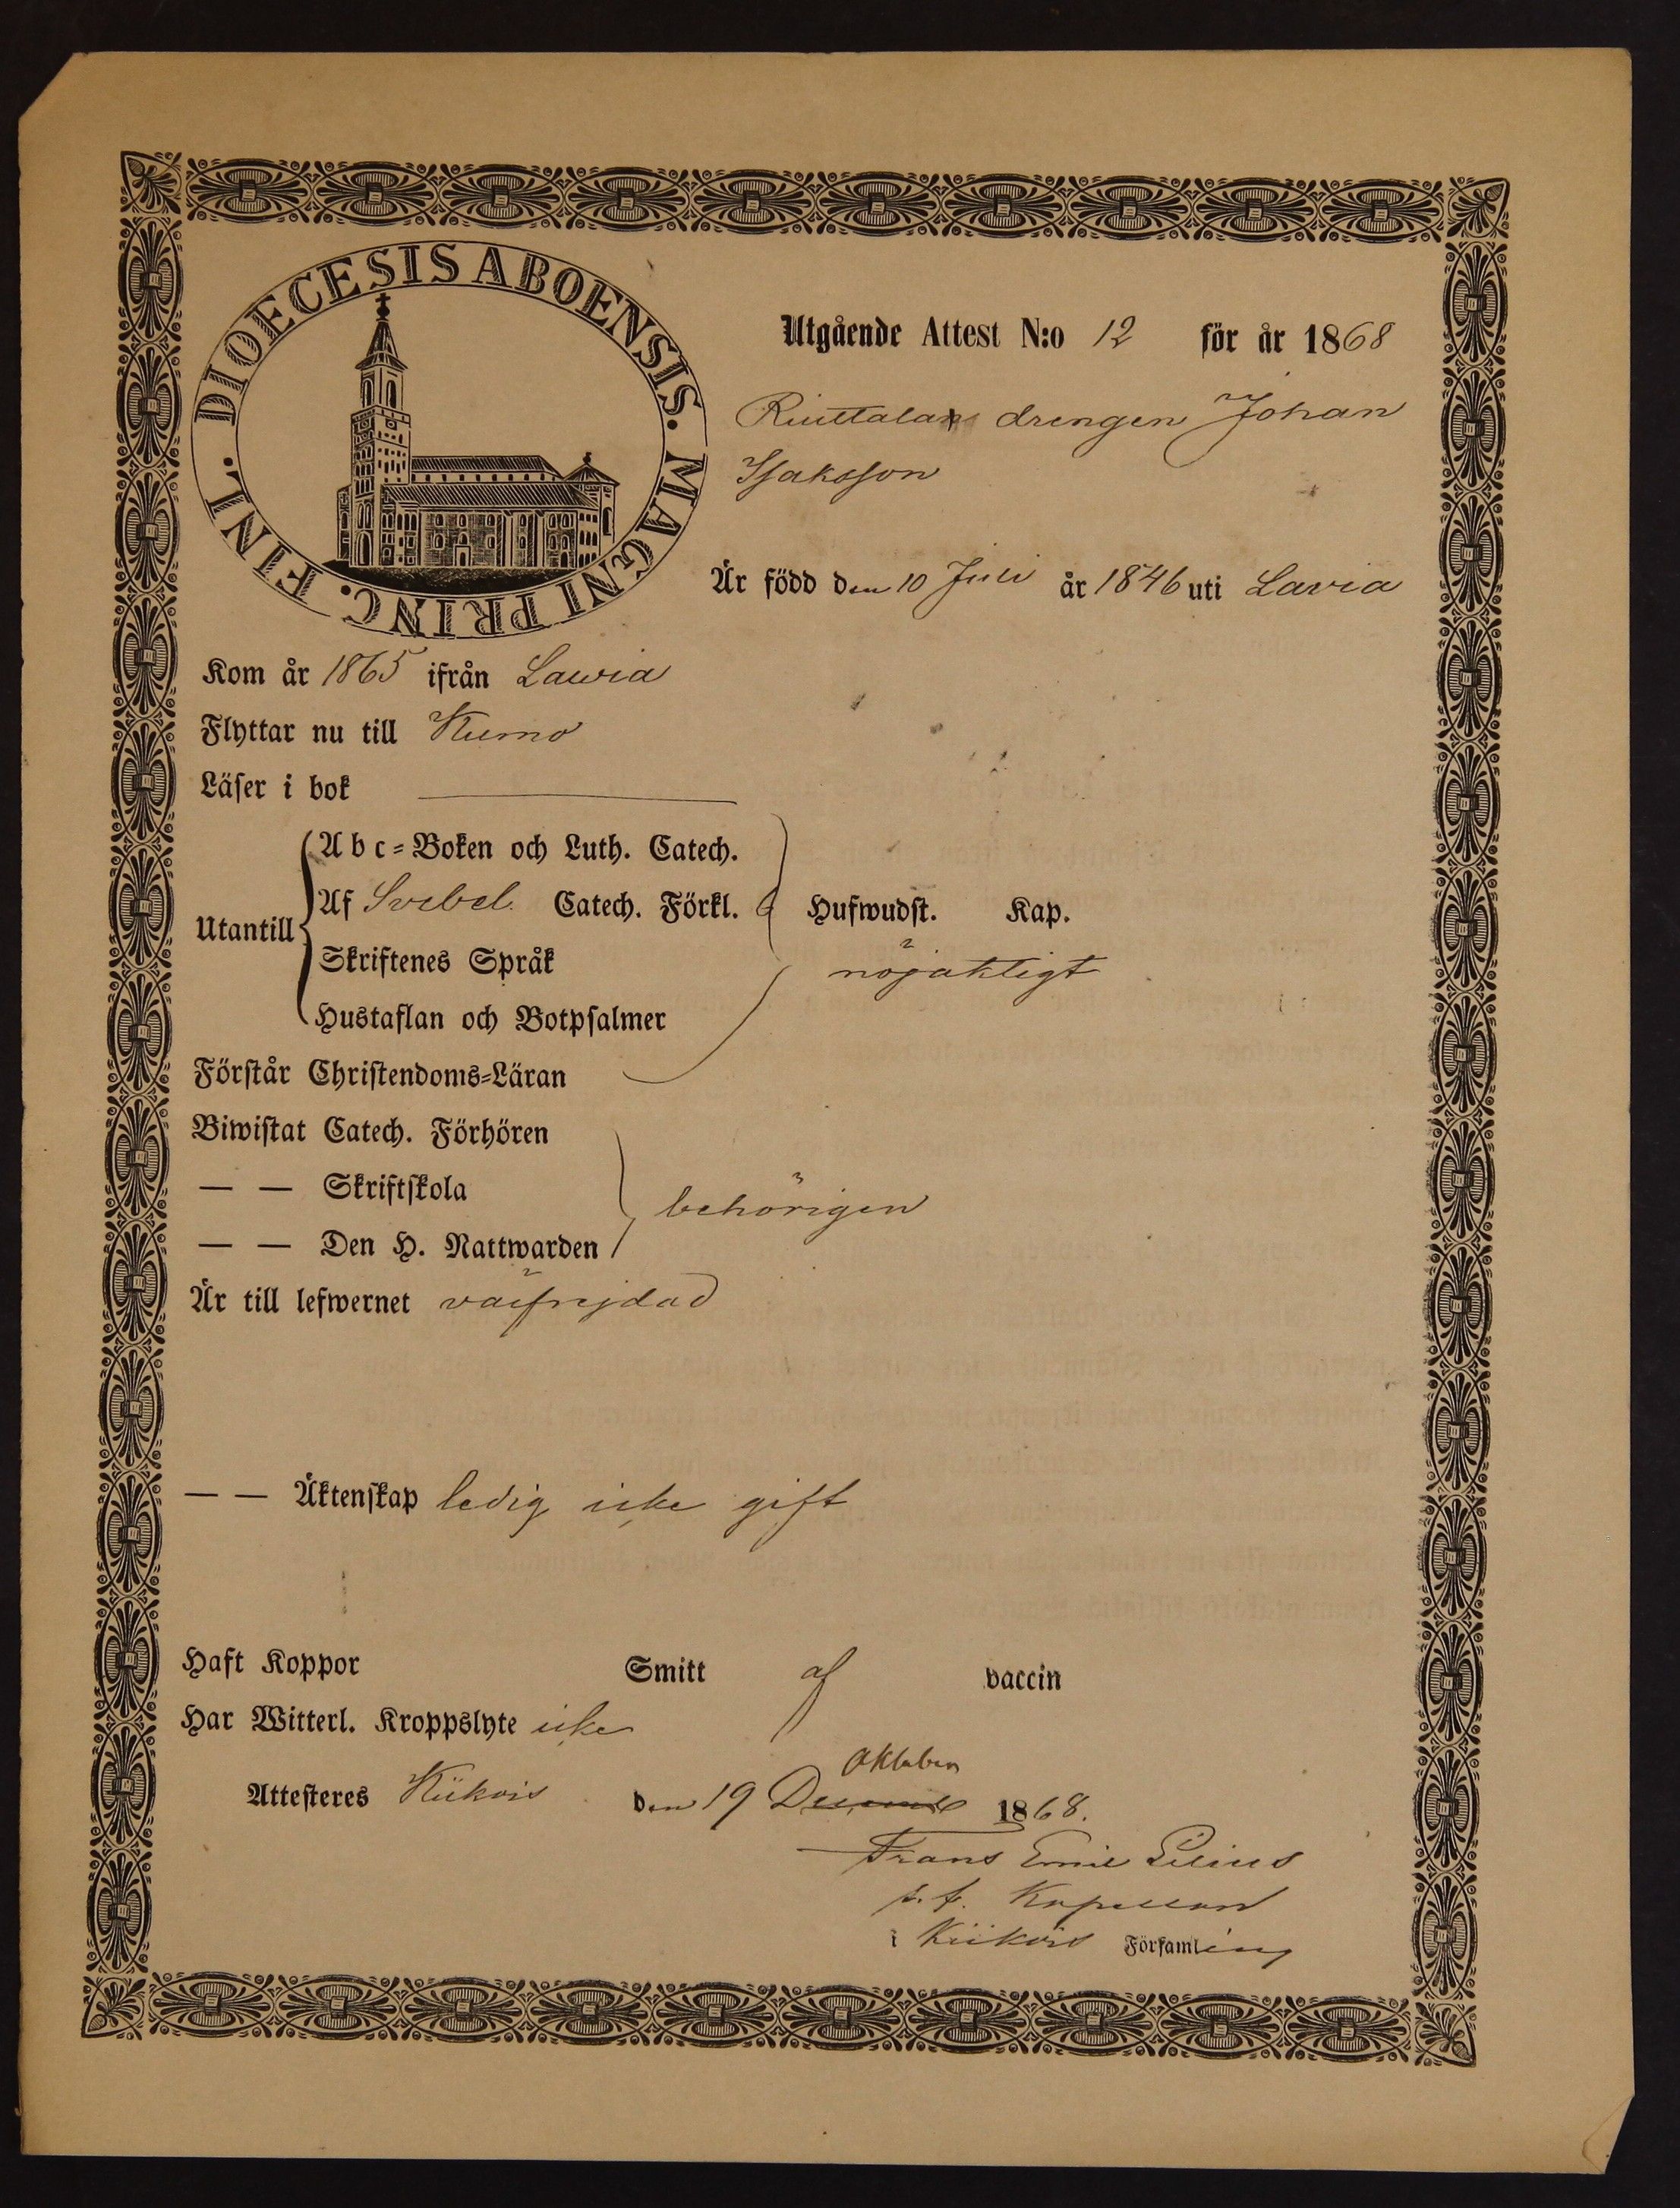 DIOECESIS ABOENSIS. MAGNI PRINC. FINL.
Utgående Attest N:o 12 för år 1868
Riuttala drengen Johan
Isaksson
Är född den 10 Juli år 1846 uti Lavia
Kom år 1865 ifrån Lavia
Flyttar nu till Kumo
Läser i bok
Utantill
Abc-Boken och Luth. Catech.
Af Svebel. Catech. Förkl. Hufwudst. Kap.
Skriftenes Språk nöjaktigt
Hustaflan och Botpsalmer
Förstår Christendoms-Läran
Biwistat Catech. Förhören
— — Skriftskola behörigen
— — Den H. Nattwarden
Är till lefwernet välfrejdad
— — Äktenskap ledig icke gift
Haft Koppor Smitt af vaccin
Har Witterl. Kroppslyte icke
Oktober
Attesteres Kiikois den 19 Decemb 1868.
Frans Emil
t.f. Kapellan
i Kiikois Församling